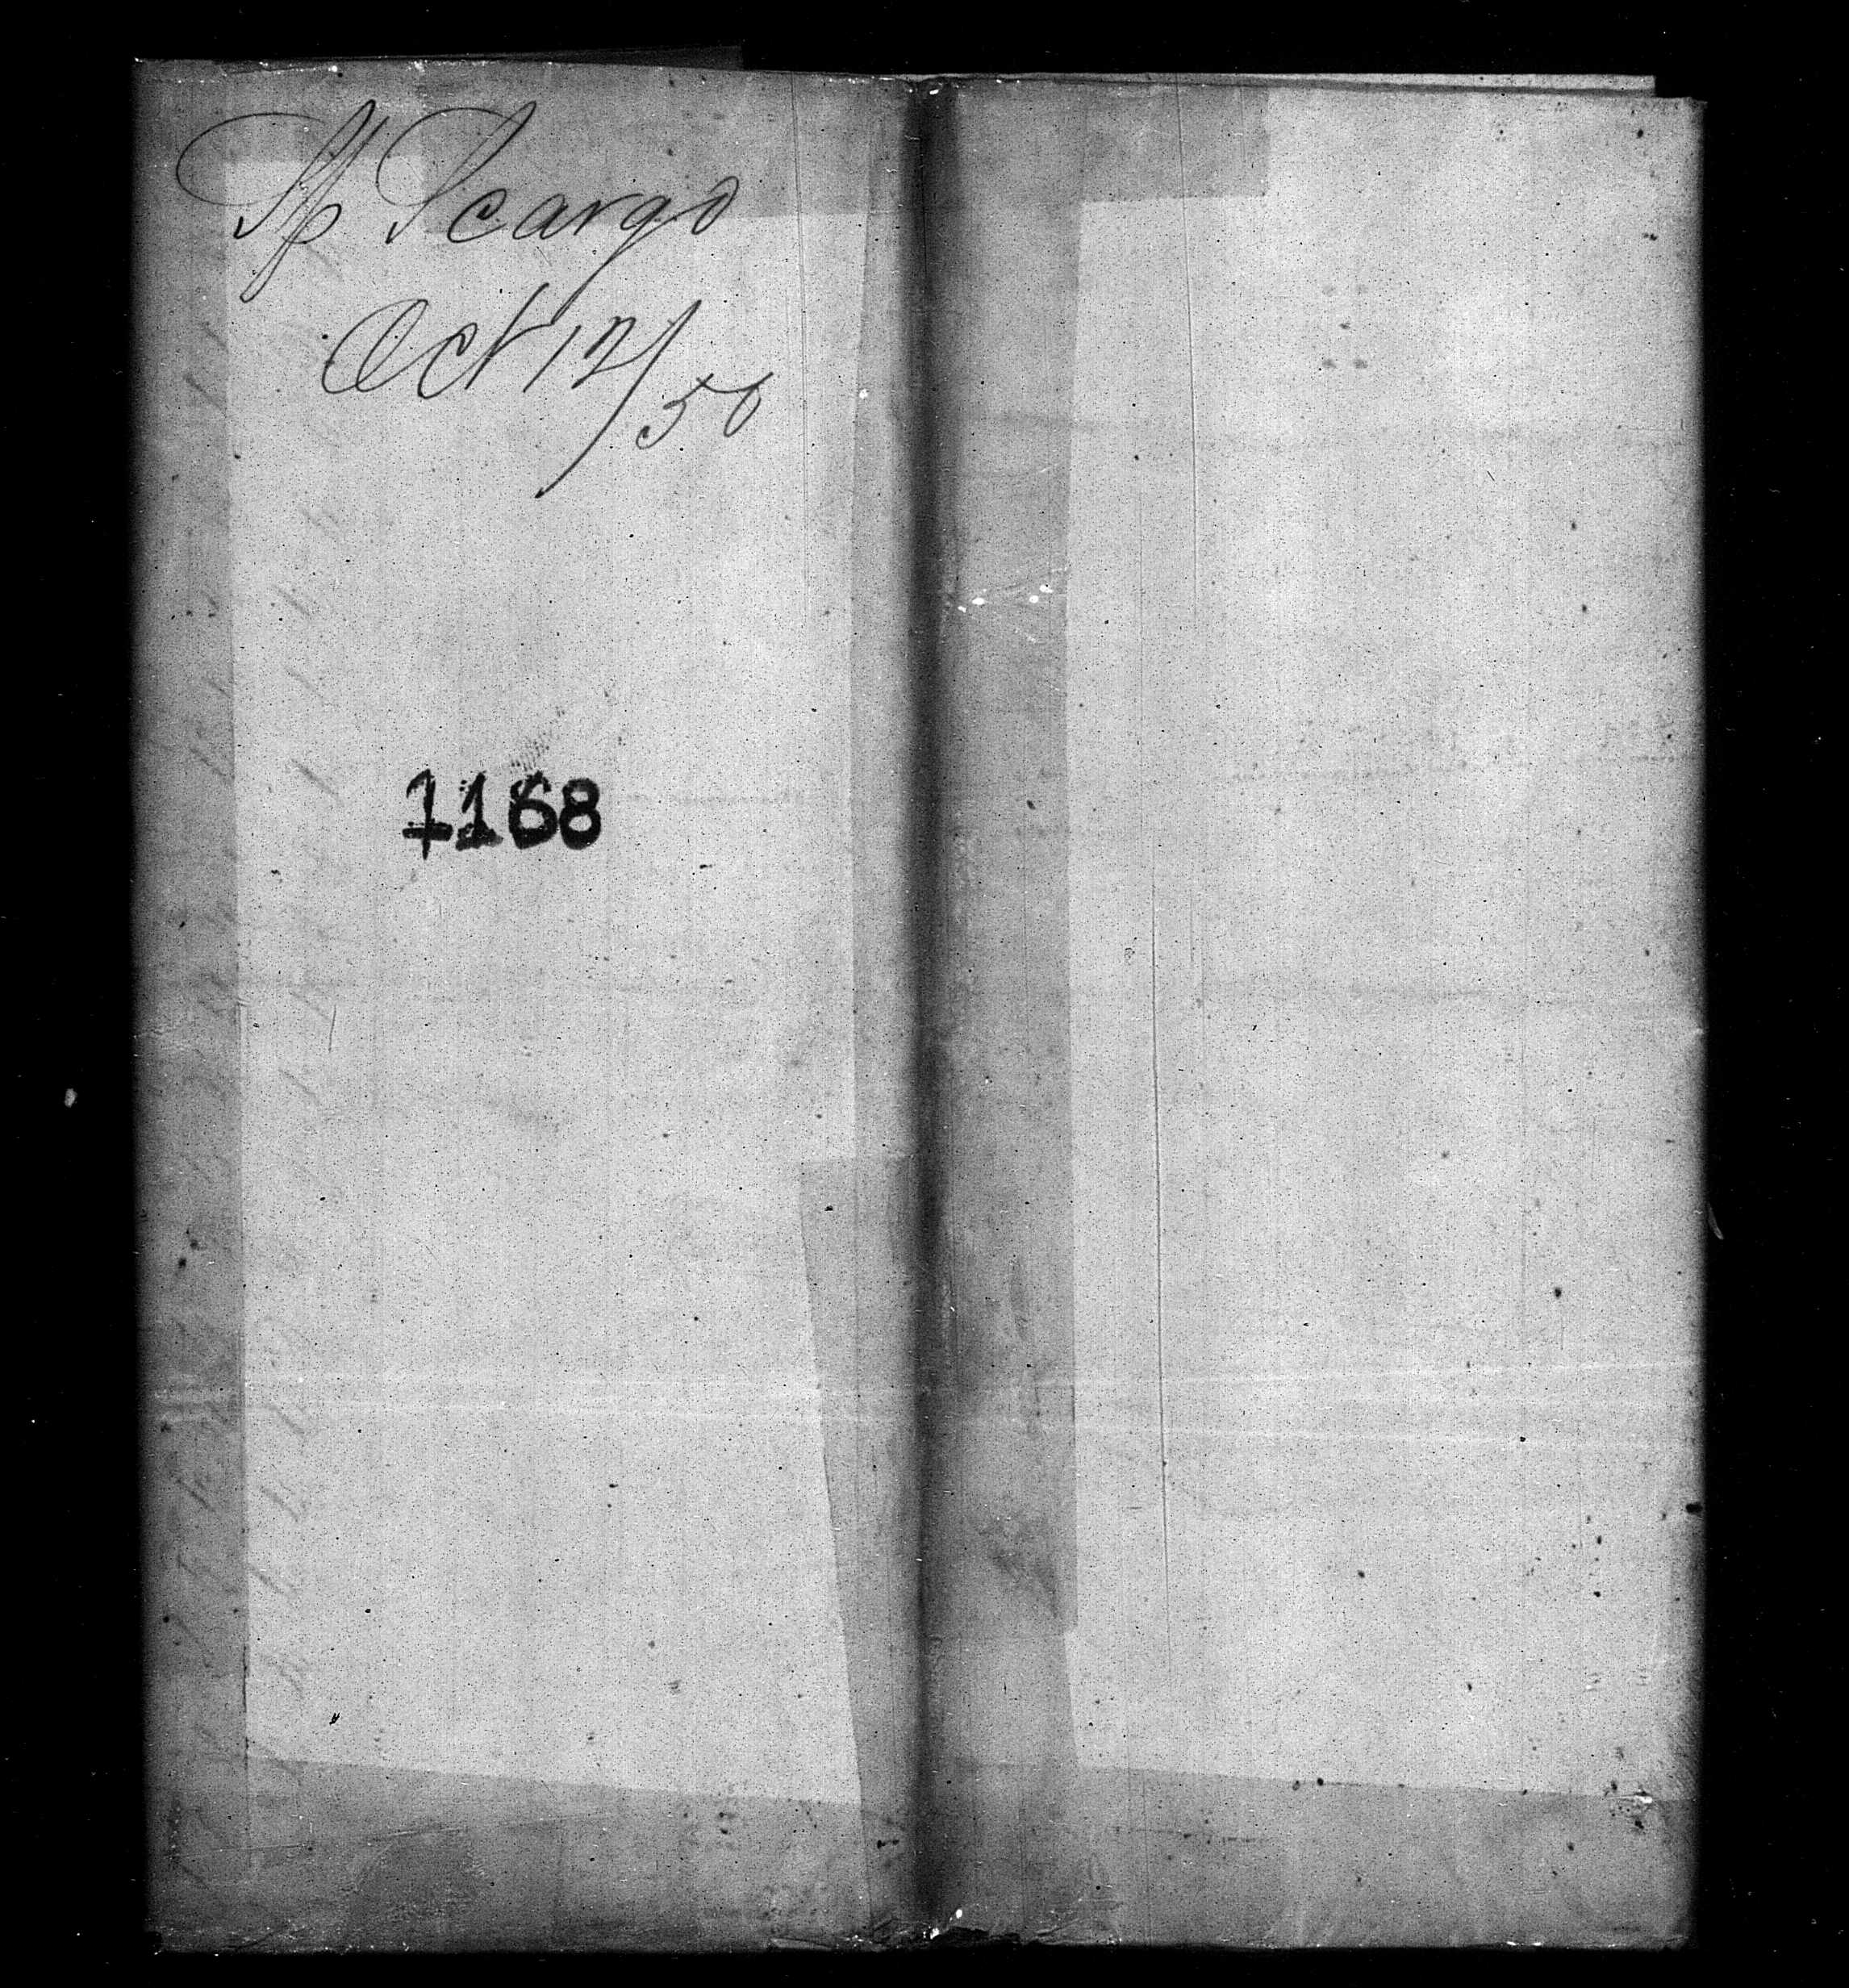 Sp Scargo
Oct 12/50
1168